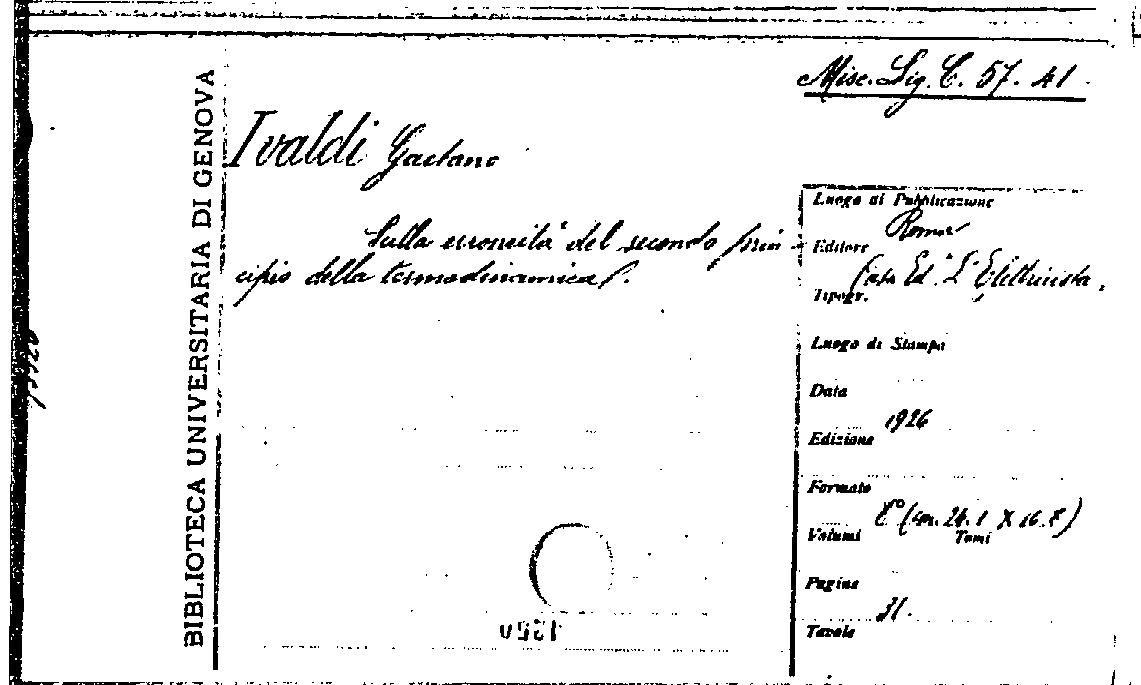 Misc. Lig. C. 57. 41.
BIBLIOTECA UNIVERSITARIA DI GENOVA
Ivaldi Gaetano
Sulla erroneità del secondo prin-
cipio della termodinamica.
Luogo di Pubblicazione
Roma
Editore
Casa Ed. "L'Elettricista.
Tipogr.
Luogo di Stampa
Data
1926
Edizione
Formato
8° (cm. 24.1 X 16.8)
Volumi Tomi
Pagine
31.
Tavole